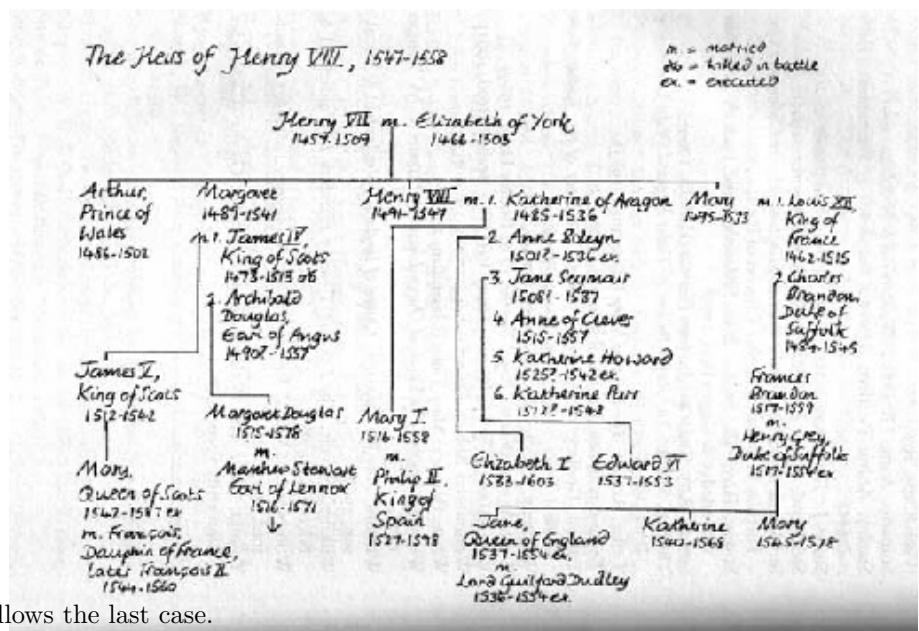 The Heirs of Henry VIII, 1547-1558
m. = married
kb = killed in battle
ex. = executed
Henry VII m. Elizabeth of York
1457-1509 1466-1503
Arthur,
Prince of
Wales
1486-1502
Margaret
1489-1541
m 1. James IV,
King of Scots
1473-1513 kb
2. Archibald
Douglas,
Earl of Angus
1490?-1557
Henry VIII m. 1. Katherine of Aragon
1491-1547 1485-1536
2. Anne Boleyn
1501?-1536 ex.
3. Jane Seymour
1508?-1537
4. Anne of Cleves
1515-1557
5. Katherine Howard
1525?-1542 ex.
6. Katherine Parr
1512?-1548
Mary m. 1. Louis XII
King of
France
1462-1515
2. Charles
Brandon,
Duke of
Suffolk
1484-1545
James V,
King of Scots
1512-1542
Margaret Douglas
1515-1578
m.
Matthew Stewart
Earl of Lennox
1516-1571
Mary I
1516-1558
m.
Philip II,
King of
Spain
1527-1598
Elizabeth I
1533-1603
Edward VI
1537-1553
Frances
Brandon
1517-1559
m.
Henry Grey,
Duke of Suffolk
1517-1554 ex
Mary,
Queen of Scots
1542-1587 ex
m. François,
Dauphin of France,
later François II
1544-1560
Jane,
Queen of England
1537-1554 ex.
m
Lord Guilford Dudley
1536-1554 ex.
Katherine
1540-1568
Mary
1545-1578
llows the last case.